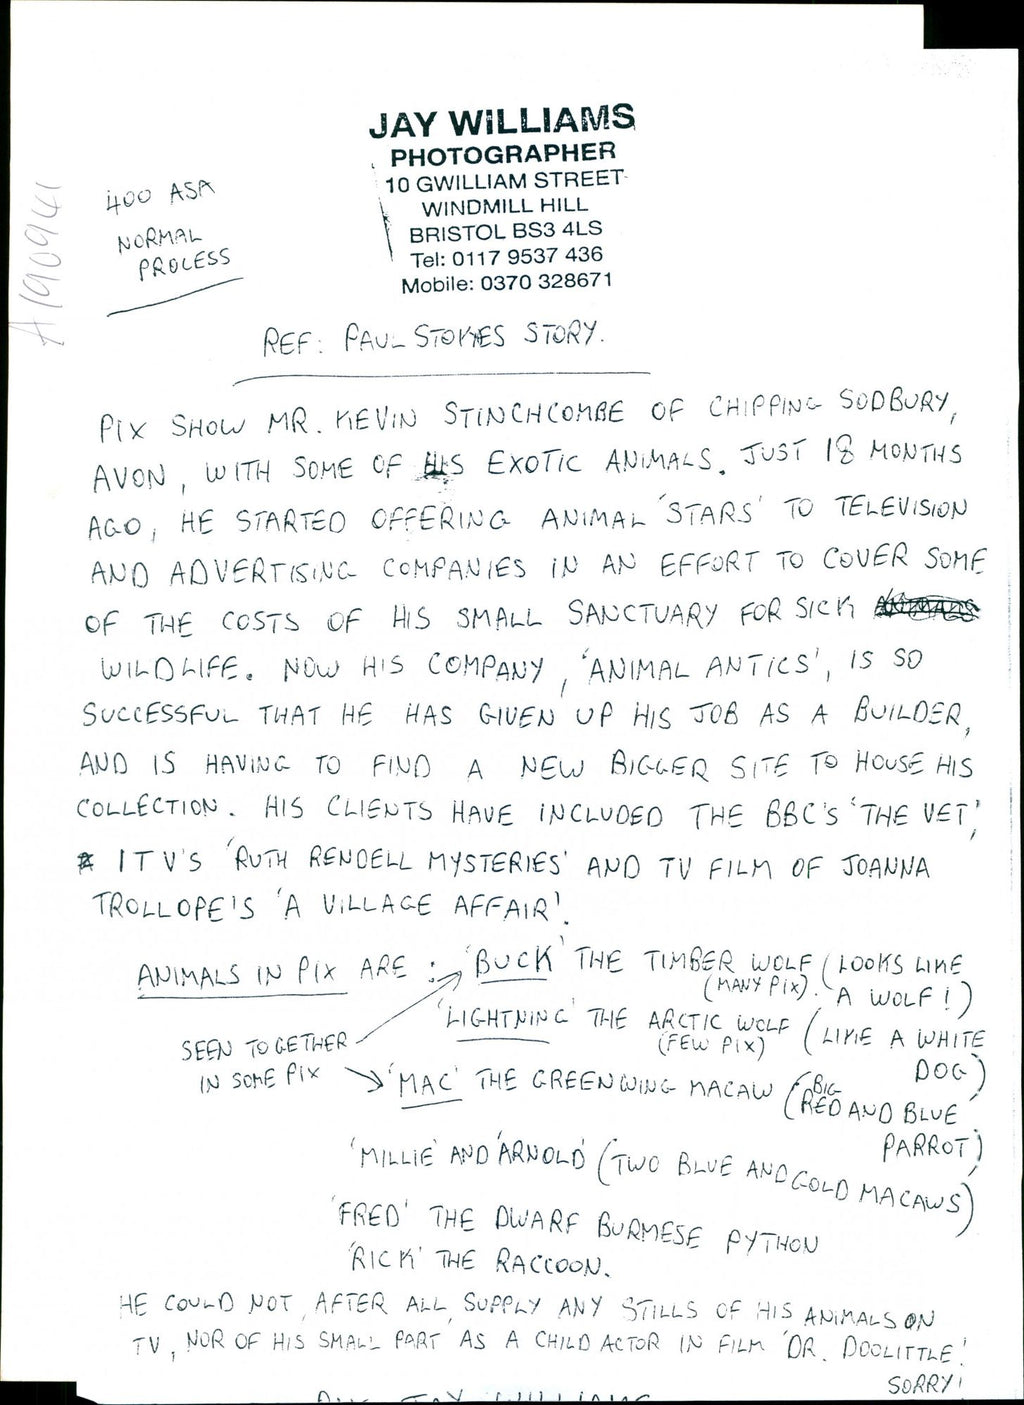 JAY WILLIAMS
PHOTOGRAPHER
10 GWILLIAM STREET
WINDMILL HILL
BRISTOL BS3 4LS
Tel: 0117 9537 436
Mobile: 0370 328671
400 ASA
NORMAL
PROCESS
A190941
REF: PAUL STOKES STORY.
PIX SHOW MR. KEVIN STINCHCOMBE OF CHIPPING SODBURY,
AVON, WITH SOME OF HIS EXOTIC ANIMALS. JUST 18 MONTHS
AGO, HE STARTED OFFERING ANIMAL 'STARS' TO TELEVISION
AND ADVERTISING COMPANIES IN AN EFFORT TO COVER SOME
OF THE COSTS OF HIS SMALL SANCTUARY FOR SICK
WILDLIFE. NOW HIS COMPANY, 'ANIMAL ANTICS', IS SO
SUCCESSFUL THAT HE HAS GIVEN UP HIS JOB AS A BUILDER,
AND IS HAVING TO FIND A NEW BIGGER SITE TO HOUSE HIS
COLLECTION. HIS CLIENTS HAVE INCLUDED THE BBC'S 'THE VET',
ITV'S 'RUTH RENDELL MYSTERIES' AND TV FILM OF JOANNA
TROLLOPE'S 'A VILLAGE AFFAIR'.
ANIMALS IN PIX ARE : 'BUCK' THE TIMBER WOLF (LOOKS LIKE
(MANY PIX). A WOLF!)
'LIGHTNING' THE ARCTIC WOLF (LIKE A WHITE
(FEW PIX) DOG)
SEEN TOGETHER
IN SOME PIX
'MAC' THE GREENWING MACAW (BIG
RED AND BLUE
PARROT)
'MILLIE' AND 'ARNOLD' (TWO BLUE AND GOLD MACAWS)
'FRED' THE DWARF BURMESE PYTHON
'RICK' THE RACCOON.
HE COULD NOT, AFTER ALL, SUPPLY ANY STILLS OF HIS ANIMALS ON
TV, NOR OF HIS SMALL PART AS A CHILD ACTOR IN FILM 'DR. DOOLITTLE'.
SORRY!
JAY WILLIAMS